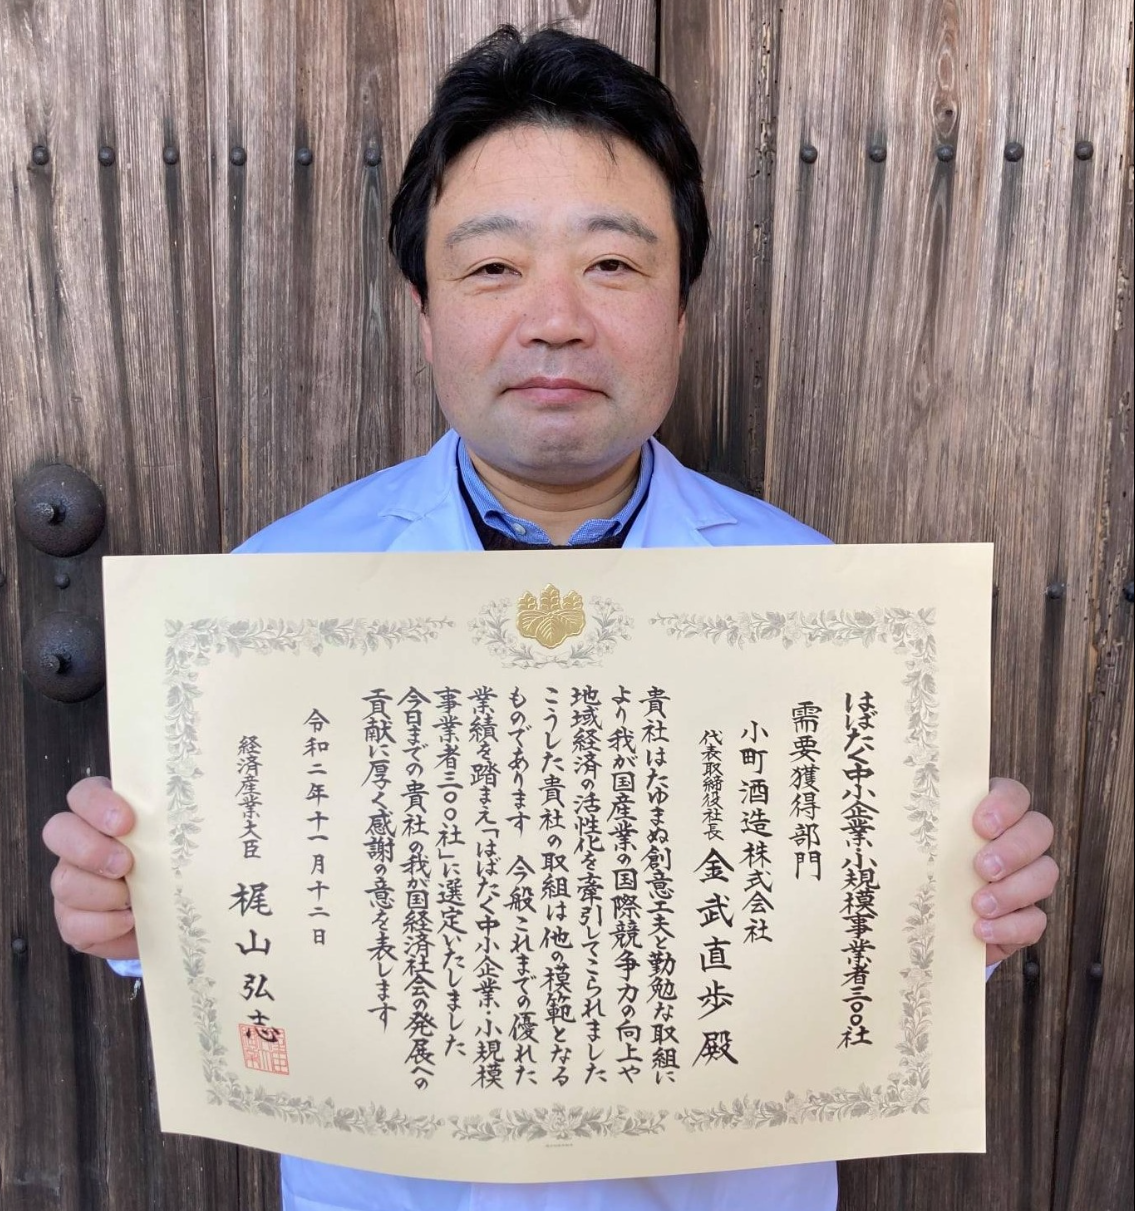 はばたく中小企業・小規模事業者三〇〇社
需要獲得部門
小町酒造株式会社
代表取締役社長 金武直歩殿
貴社はたゆまぬ創意工夫と勤勉な取組に
より我が国産業の国際競争力の向上や
地域経済の活性化を牽引してこられました
こうした貴社の取組は他の模範となる
ものであります 今般これまでの優れた
業績を踏まえ「はばたく中小企業・小規模
事業者三〇〇社」に選定いたしました
今日までの貴社の我が国経済社会の発展への
貢献に厚く感謝の意を表します
令和二年十一月十二日
経済産業大臣 梶山弘志